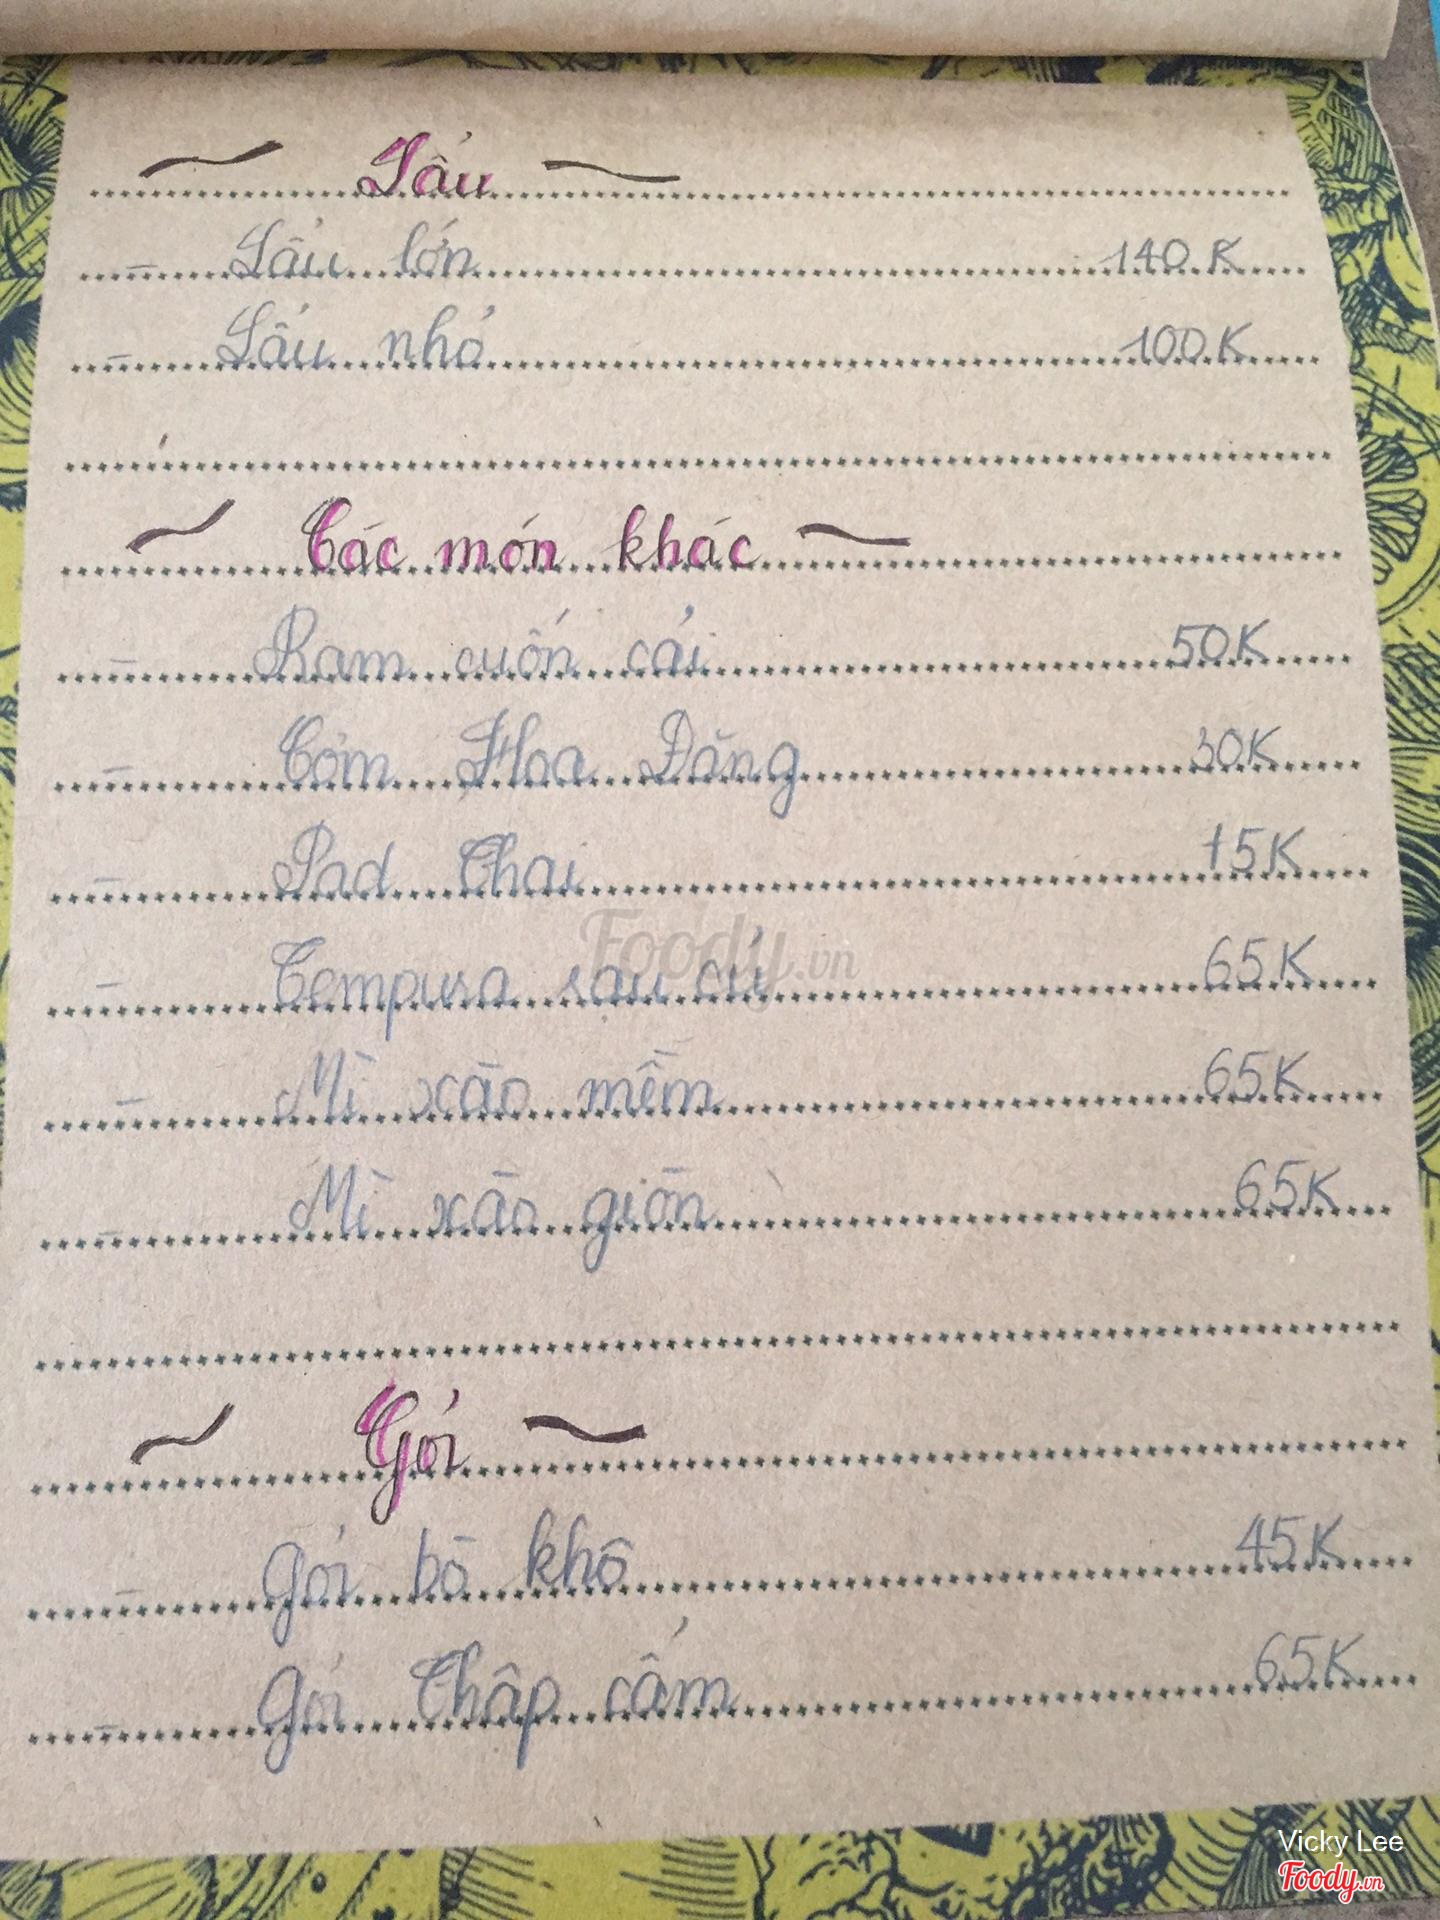 Lẩu
- Lẩu lớn 140K
- Lẩu nhỏ 100K
Các món khác
- Ram cuốn cải 50K
- Cơm Hoa Đăng 30K
- Pad Thai 15K
- Tempura rau củ 65K
- Mì xào mềm 65K
- Mì xào giòn 65K
Gỏi
- Gỏi bò khô 45K
- Gỏi Thập cẩm 65K
Foody.vn
Vicky Lee
Foody.vn